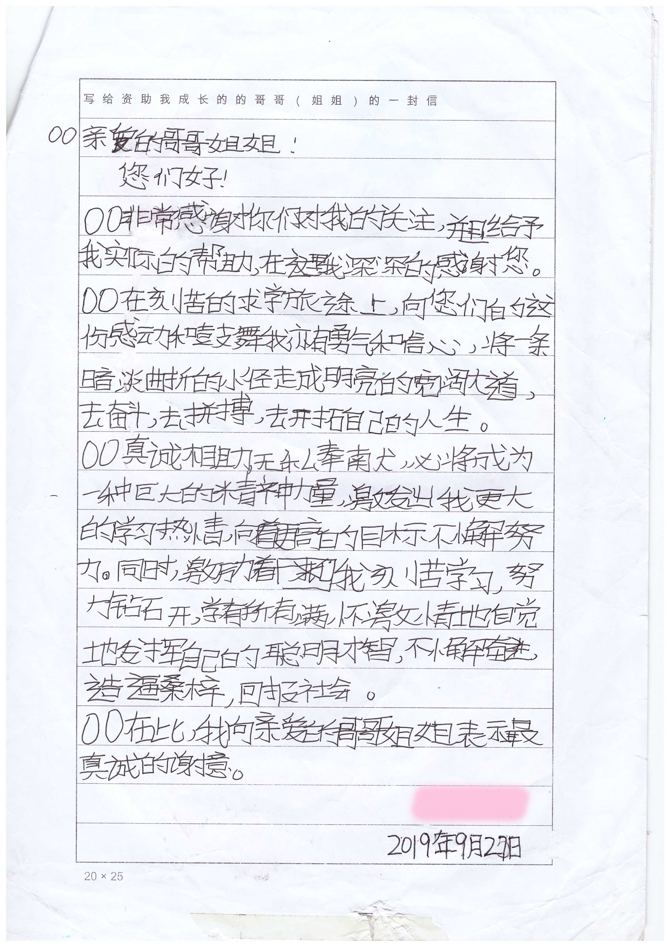 写给资助我成长的的哥哥(姐姐)的一封信
○○亲爱的哥哥姐姐!
您们好!
○○非常感谢你们对我的关注,并且给予
我实际的帮助,在这里我深深的感谢您。
○○在刻苦的求学旅途上,向您们的这
份感动和支舞我亦有勇气和信心,将一条
暗淡曲折的小径走成明亮的宽阔大道,
去奋斗,去拼搏,去开拓自己的人生。
○○真诚相助,无私奉南犬,必将成为
一种巨大的精神力量,激发出我更大
的学习热情,向着更高的目标不懈努
力。同时,激励着我们我刻苦学习,努
力钻石开,学有所有,满怀激情地自觉
地发挥自己的聪明才智,不懈奋进,
造福桑梓,回报社会。
○○在比,我向亲爱的哥哥姐姐表示最
真诚的谢意。
2019年9月27日
20×25